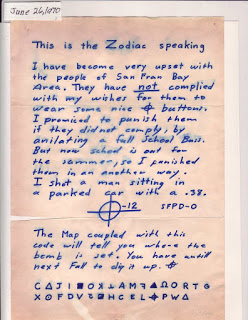 June 26, 1970
This is the Zodiac speaking
I have become very upset with
the people of San Fran Bay
Area. They have not complied
with my wishes for them to
wear some nice ⌖ buttons.
I promised to punish them
if they did not comply, by
anilating a full School Buss.
But now school is out for
the summer, so I punished
them in an another way.
I shot a man sitting in
a parked car with a .38.
⌖-12 SFPD-0
The Map coupled with this
code will tell you where the
bomb is set. You have untill
next Fall to dig it up. ⌖